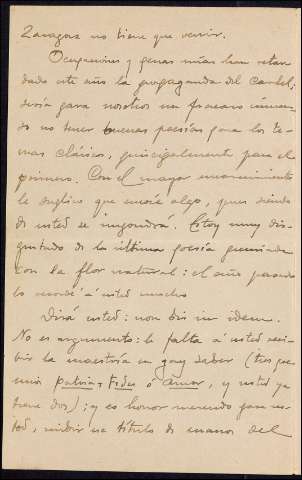 Zaragoza no tiene que venir.
Ocupaciones y penas mias han retar
dado este año la propaganda del Cartel;
sería para nosotros un fracaso inmen-
so no tener buenas poesías para los te-
mas clásicos, principalmente para el
primero. Con el mayor encarecimiento
le suplico que envie algo, pues siendo
de usted se impondrá. Estoy muy dis-
gustado de la última poesía premiada
con la flor natural: el año pasado
le recordé á usted mucho
Dirá usted: non bis in idem.
No es argumento: le falta á usted reci-
bir la maestría en gay saber (tres pre-
mios Patria, Fides ó Amor, y usted ya
tiene dos); y es honor merecido para us-
ted, recibir un título de manos del